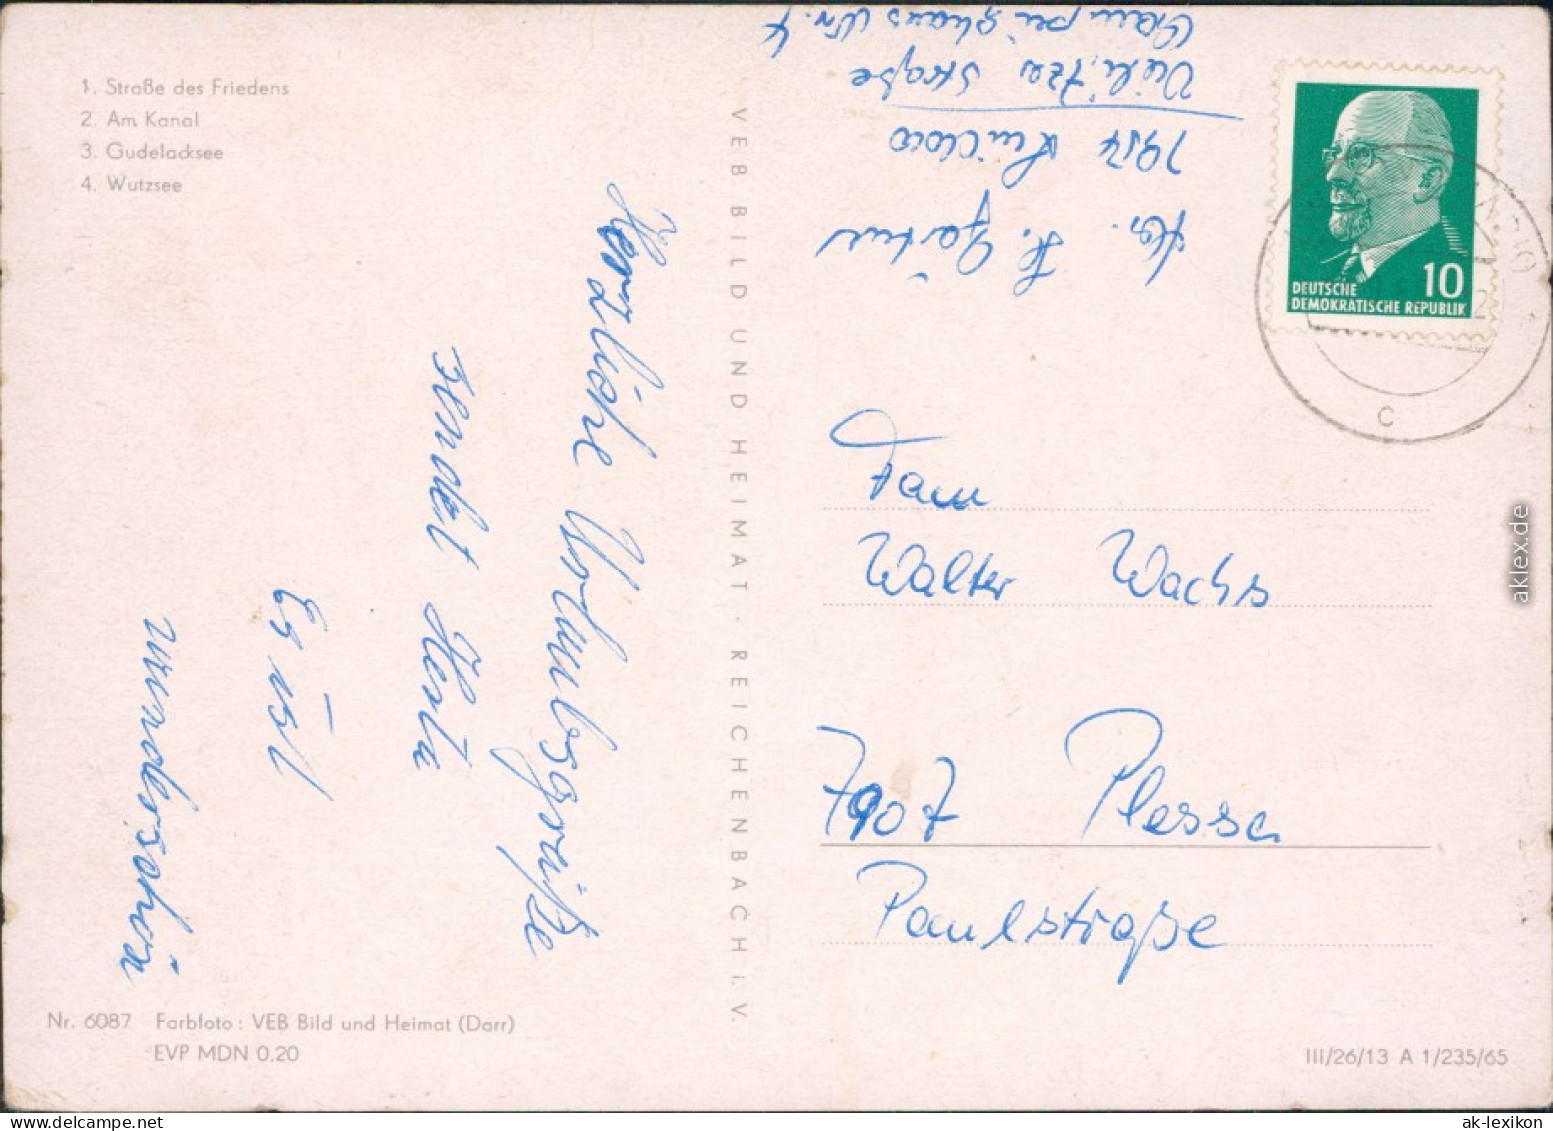 1. Straße des Friedens
2. Am Kanal
3. Gudelacksee
4. Wutzsee
Herzliche Urlaubsgrüße
sendet Herta
Es ist
wunderschön
VEB BILD UND HEIMAT · REICHENBACH i. V.
H. Gärtner
Lindow
Straße
DEUTSCHE
DEMOKRATISCHE REPUBLIK
10
c
Fam
Walter Wachs
7907 Plessa
Paulstraße
Nr. 6087 Farbfoto: VEB Bild und Heimat (Darr)
EVP MDN 0,20
III/26/13 A 1/235/65
aklex.de
ak-lexikon.com